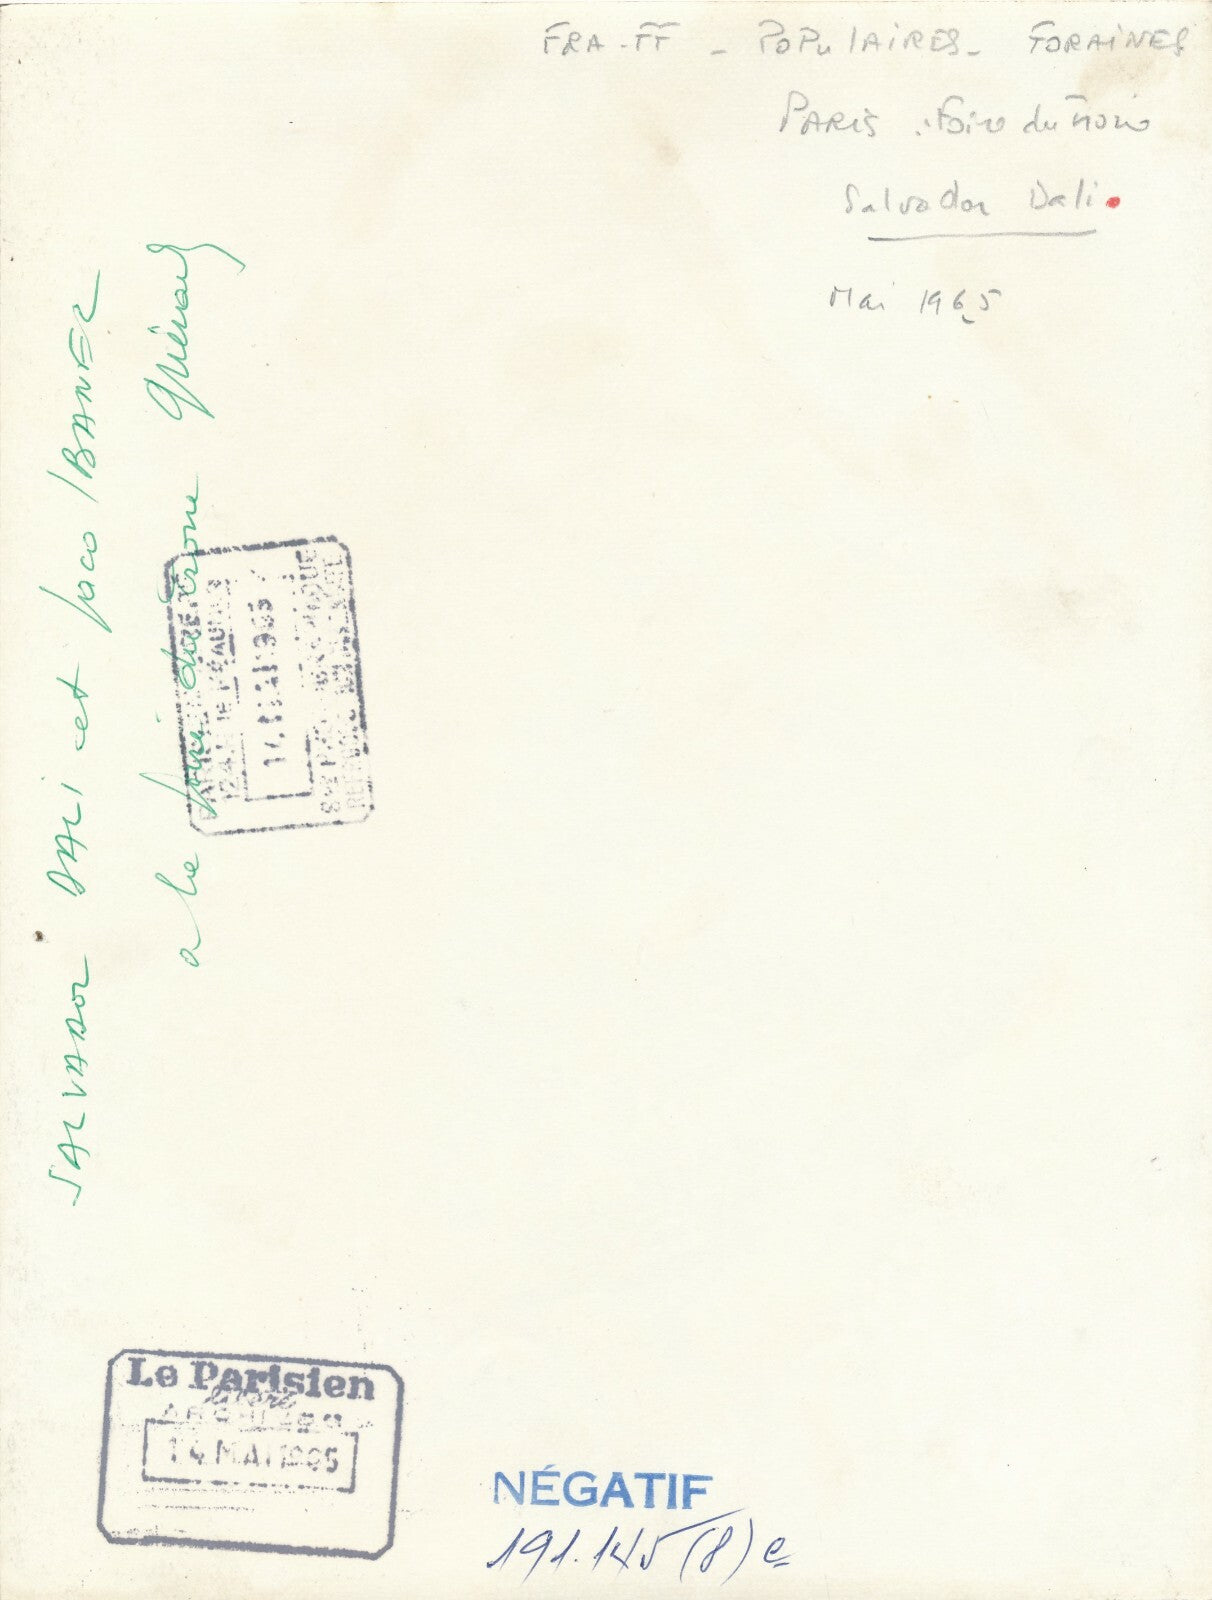 FRA-FF - POPULAIRES - FORAINES
PARIS
Salvador Dali.
Mai 1965
SALVADOR DALI et Paco IBANEZ
a la foire du trone
14 MAI 1965
Le Parisien
libéré
ARCHIVES
14 MAI 1965
NÉGATIF
191.145 (8) e